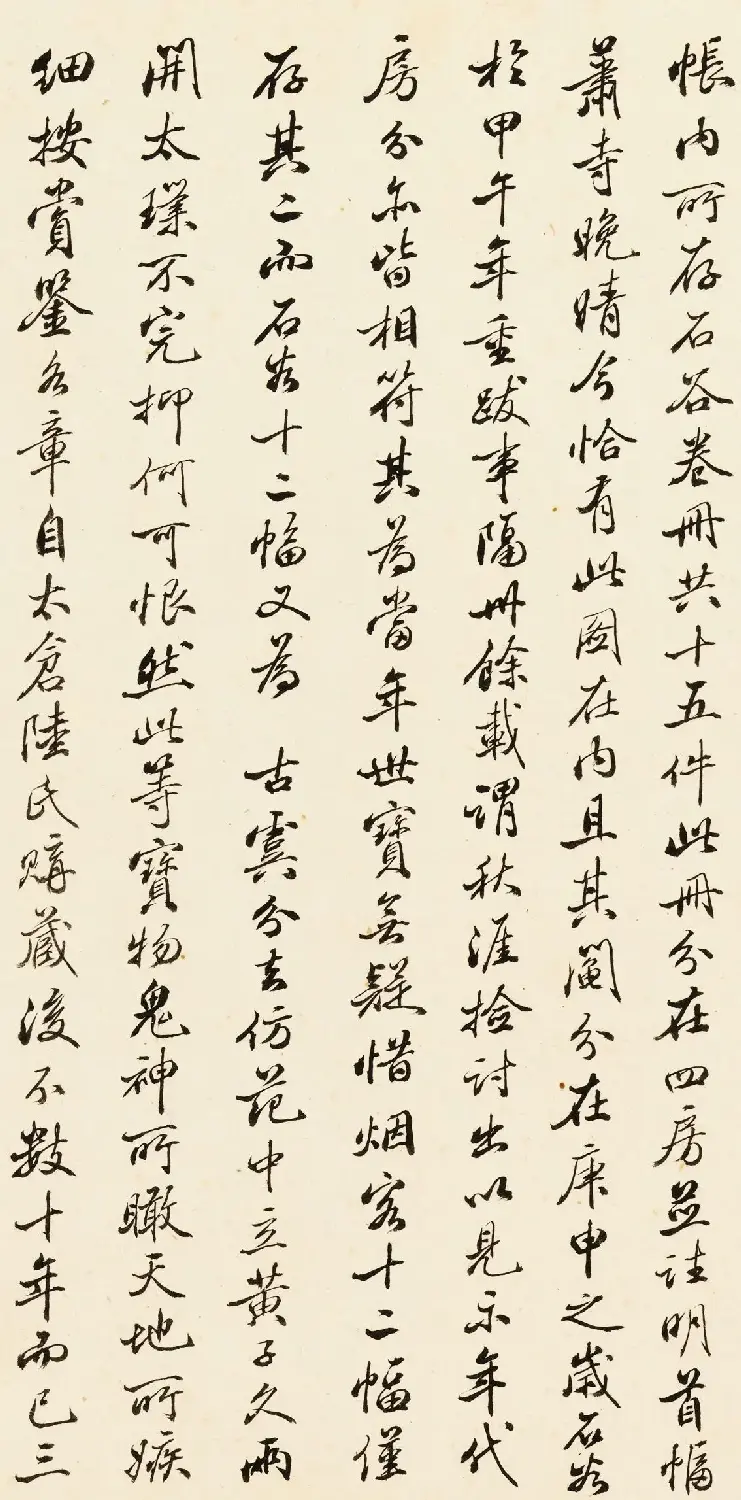 帳内所存石谷卷冊共十五件此冊分在四房並註明首幅
蕭寺晚晴今恰有此圖在内且其鬮分在庚申之歲石谷
於甲午年重跋事隔卅餘載謂秋涯撿討出以見示年代
房分亦皆相符其為當年世寶無疑惜烟客十二幅僅
存其二而石谷十二幅又為 古虞分去仿范中立黃子久兩
開太璞不完抑何可恨然此等寶物鬼神所瞰天地所嫉
細按賞鑒各章自太倉陸氏購藏後不數十年而已三